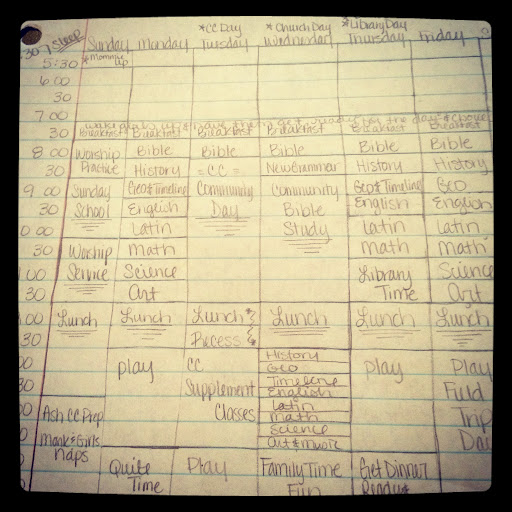 *CC Day *Church Day *Library Day
:30 / Sleep Sunday Monday Tuesday Wednesday Thursday Friday
5:30 *Mommy up
6:00
30
7:00
wake girls up & have them get ready for the day & chores
30 Breakfast Breakfast Breakfast Breakfast Breakfast Breakfast
8:00 Worship Bible Bible Bible Bible Bible
30 Practice History =CC= New Grammar History History
9:00 Sunday Geo & Timeline Community Community Geo & Timeline Geo
30 School English Day Bible English English
0:00 Latin Study Latin Latin
30 Worship Math Math Math
:00 Service Science Library Science
30 Art Time Art
:00 Lunch Lunch Lunch & Lunch Lunch Lunch
30 Recess
00 play CC History play Play
Geo
30 Supplement Timeline Field
English
00 Ash CC Prep Classes Latin Trip
Math
30 Mank & Girls Science Day
Art & Music
naps Quite Play Family Time Get Dinner
Time Fun Ready*